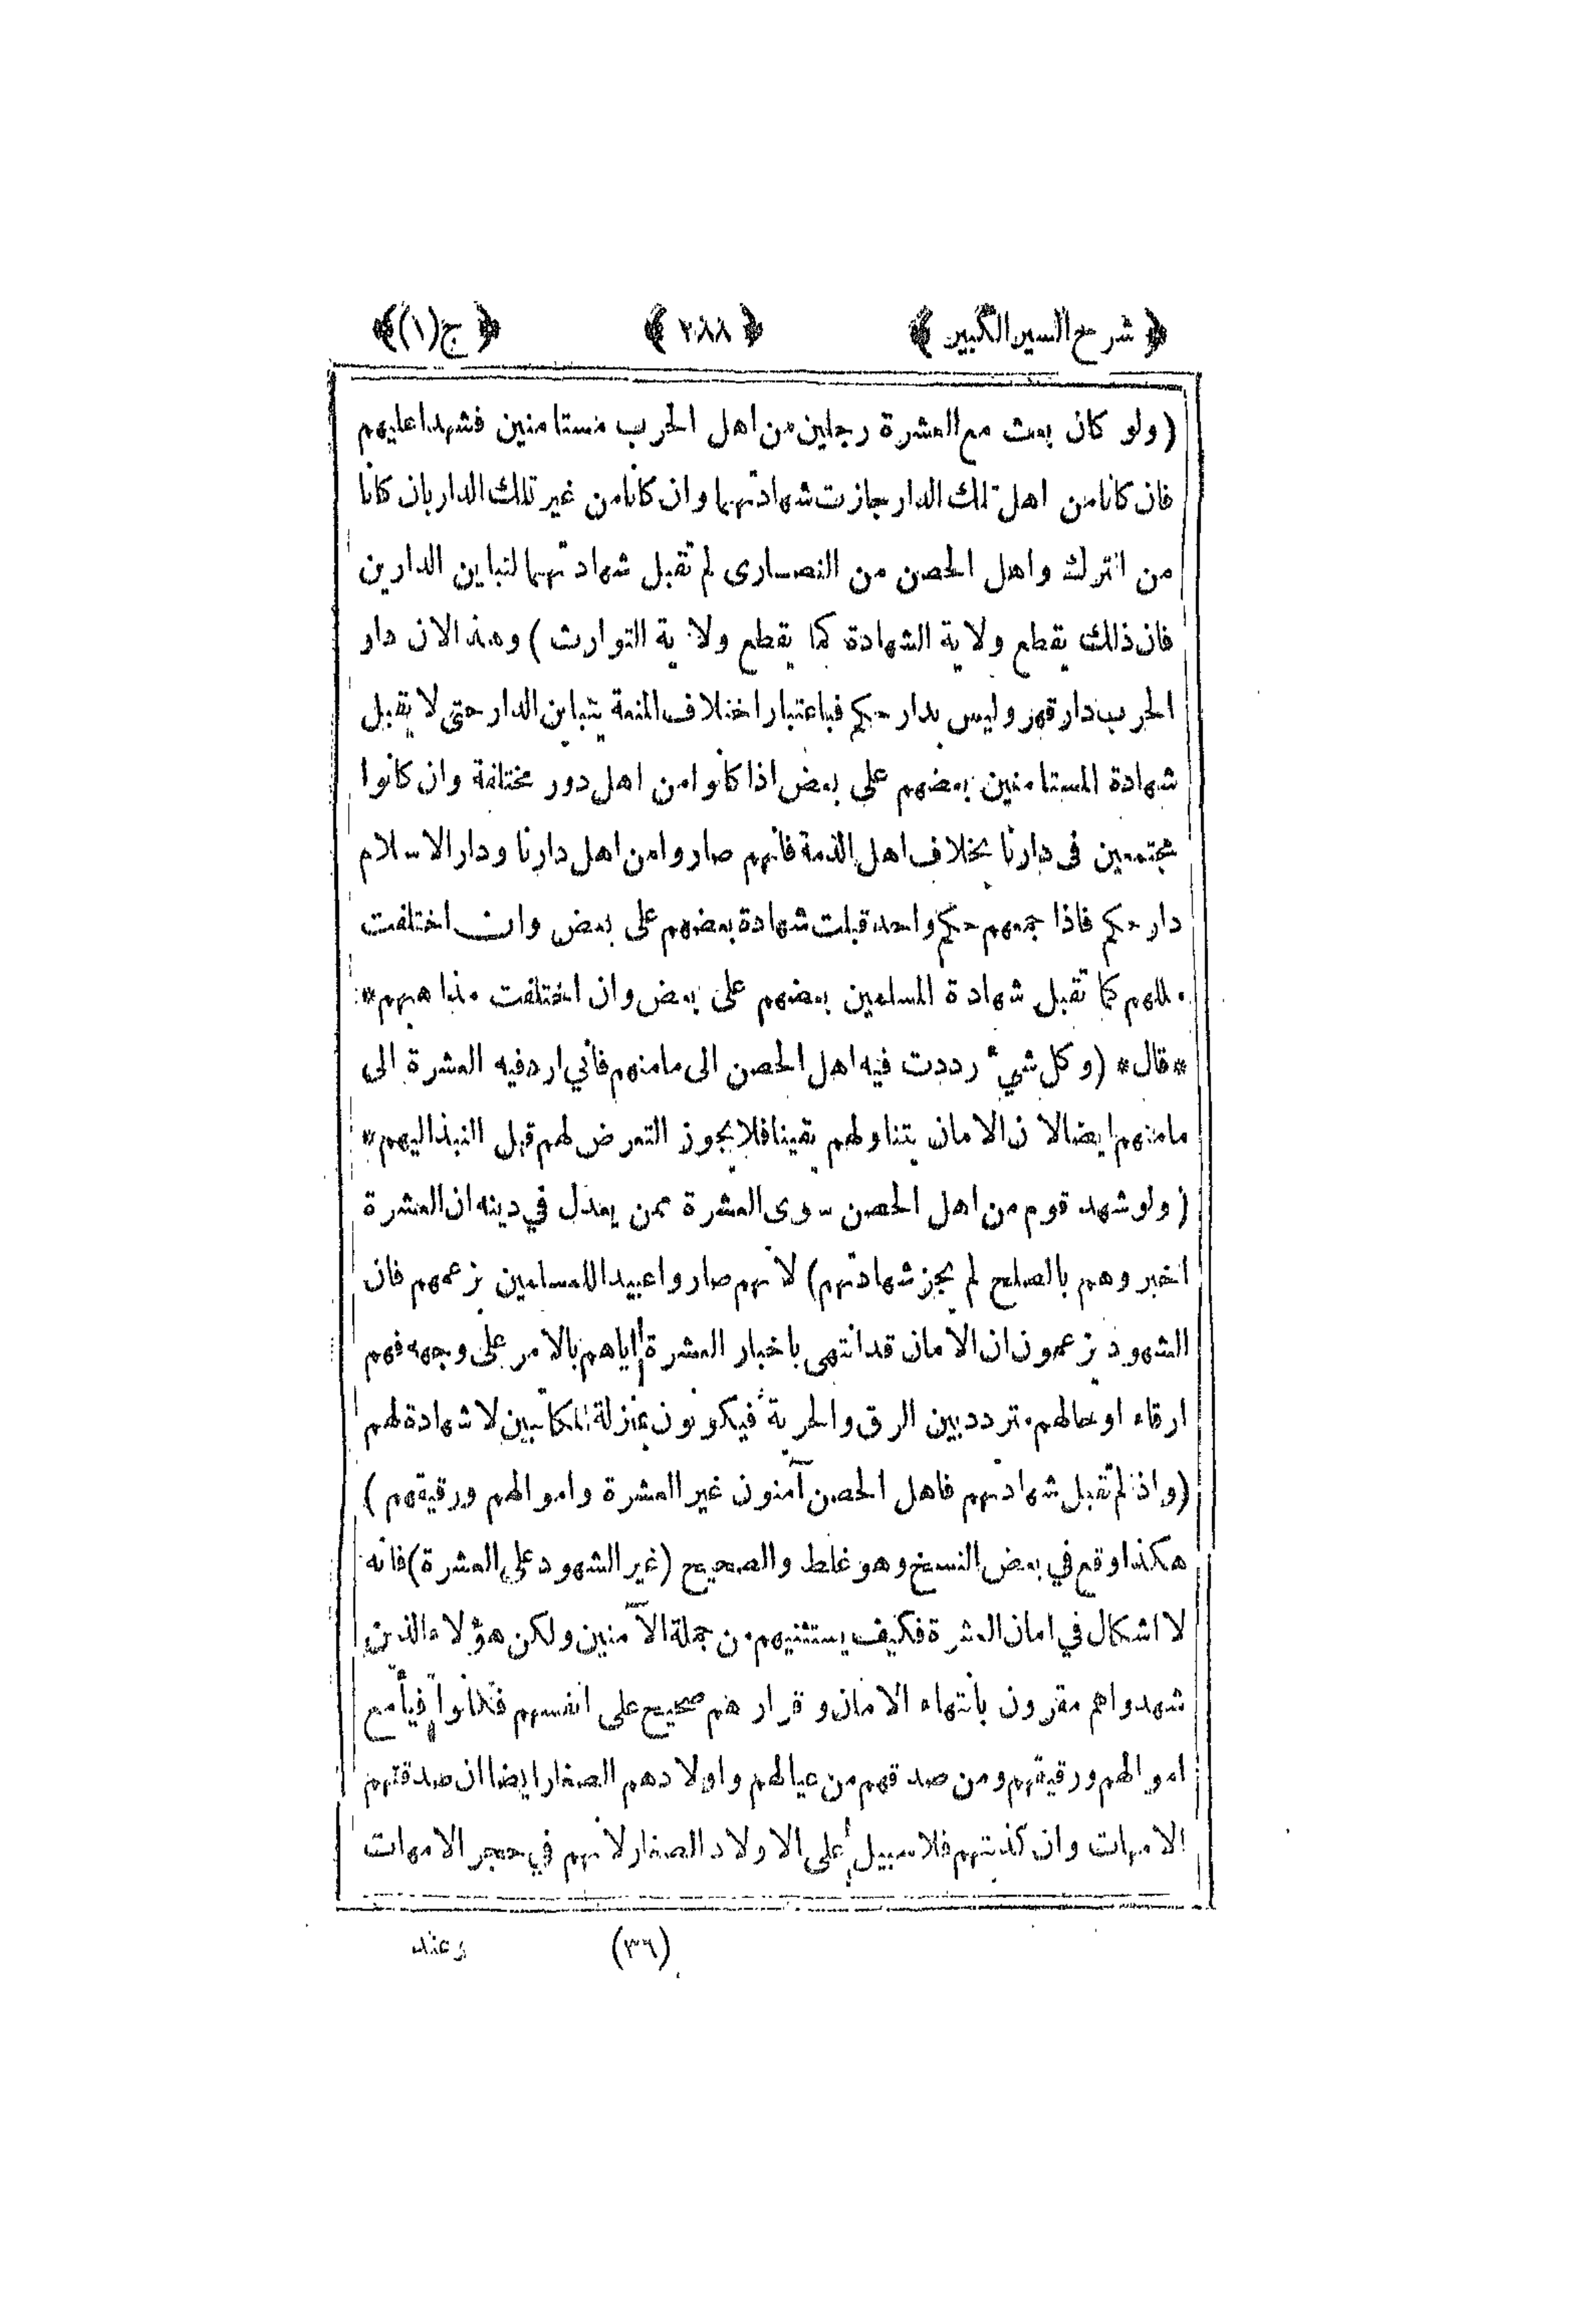 ﴿ شرح السير الكبير ﴾ ﴿ ٢٨٨ ﴾ ﴿ ج (١) ﴾
(ولو كان بعث مع العشرة رجلين من اهل الحرب مستامنين فشهدا عليهم
فان كانا من اهل تلك الدار جازت شهادتهما وان كانا من غير تلك الدار بان كانا
من الترك واهل الحصن من النصارى لم تقبل شهادتهما لتباين الدارين
فان ذلك يقطع ولاية الشهادة كما يقطع ولاية التوارث) وهذا لان دار
الحرب دار قهر وليس بدار حكم فباعتبار اختلاف المنعة يتباين الدار حتى لا يقبل
شهادة المستامنين بعضهم على بعض اذا كانوا من اهل دور مختلفة وان كانوا
مجتمعين فى دارنا بخلاف اهل الذمة فانهم صاروا من اهل دارنا ودار الاسلام
دار حكم فاذا جمعهم حكم واحد قبلت شهادة بعضهم على بعض وان اختلفت
مللهم كما تقبل شهادة المسلمين بعضهم على بعض وان اختلفت مذاهبهم*
*قال* (وكل شيء رددت فيه اهل الحصن الى مامنهم فاني ارد فيه العشرة الى
مامنهم ايضا لان الامان يتناولهم يقينا فلا يجوز التعرض لهم قبل النبذ اليهم*
(ولو شهد قوم من اهل الحصن سوى العشرة ممن يعدل في دينه ان العشرة
اخبروهم بالصلح لم يجز شهادتهم) لانهم صاروا عبيدا للمسلمين بزعمهم فان
الشهود يزعمون ان الامان قد انتهى باخبار العشرة اياهم بالامر على وجهه فهم
ارقاء او حالهم متردد بين الرق والحرية فيكونون بمنزلة المكاتبين لا شهادة لهم
(واذ لم تقبل شهادتهم فاهل الحصن آمنون غير العشرة واموالهم ورقيقهم)
هكذا وقع في بعض النسخ وهو غلط والصحيح (غير الشهود على العشرة) فانه
لا اشكال في امان العشرة فكيف يستثنيهم من جملة الآمنين ولكن هؤلاء الذين
شهدوا هم مقرون بانتهاء الامان وقرارهم صحيح على انفسهم فكانوا فيأ مع
اموالهم ورقيقهم ومن صدقهم من عيالهم واولادهم الصغار ايضا ان صدقتهم
الامهات وان كذبتهم فلا سبيل على الاولاد الصغار لانهم في حجر الامهات
(٣٦) وعند